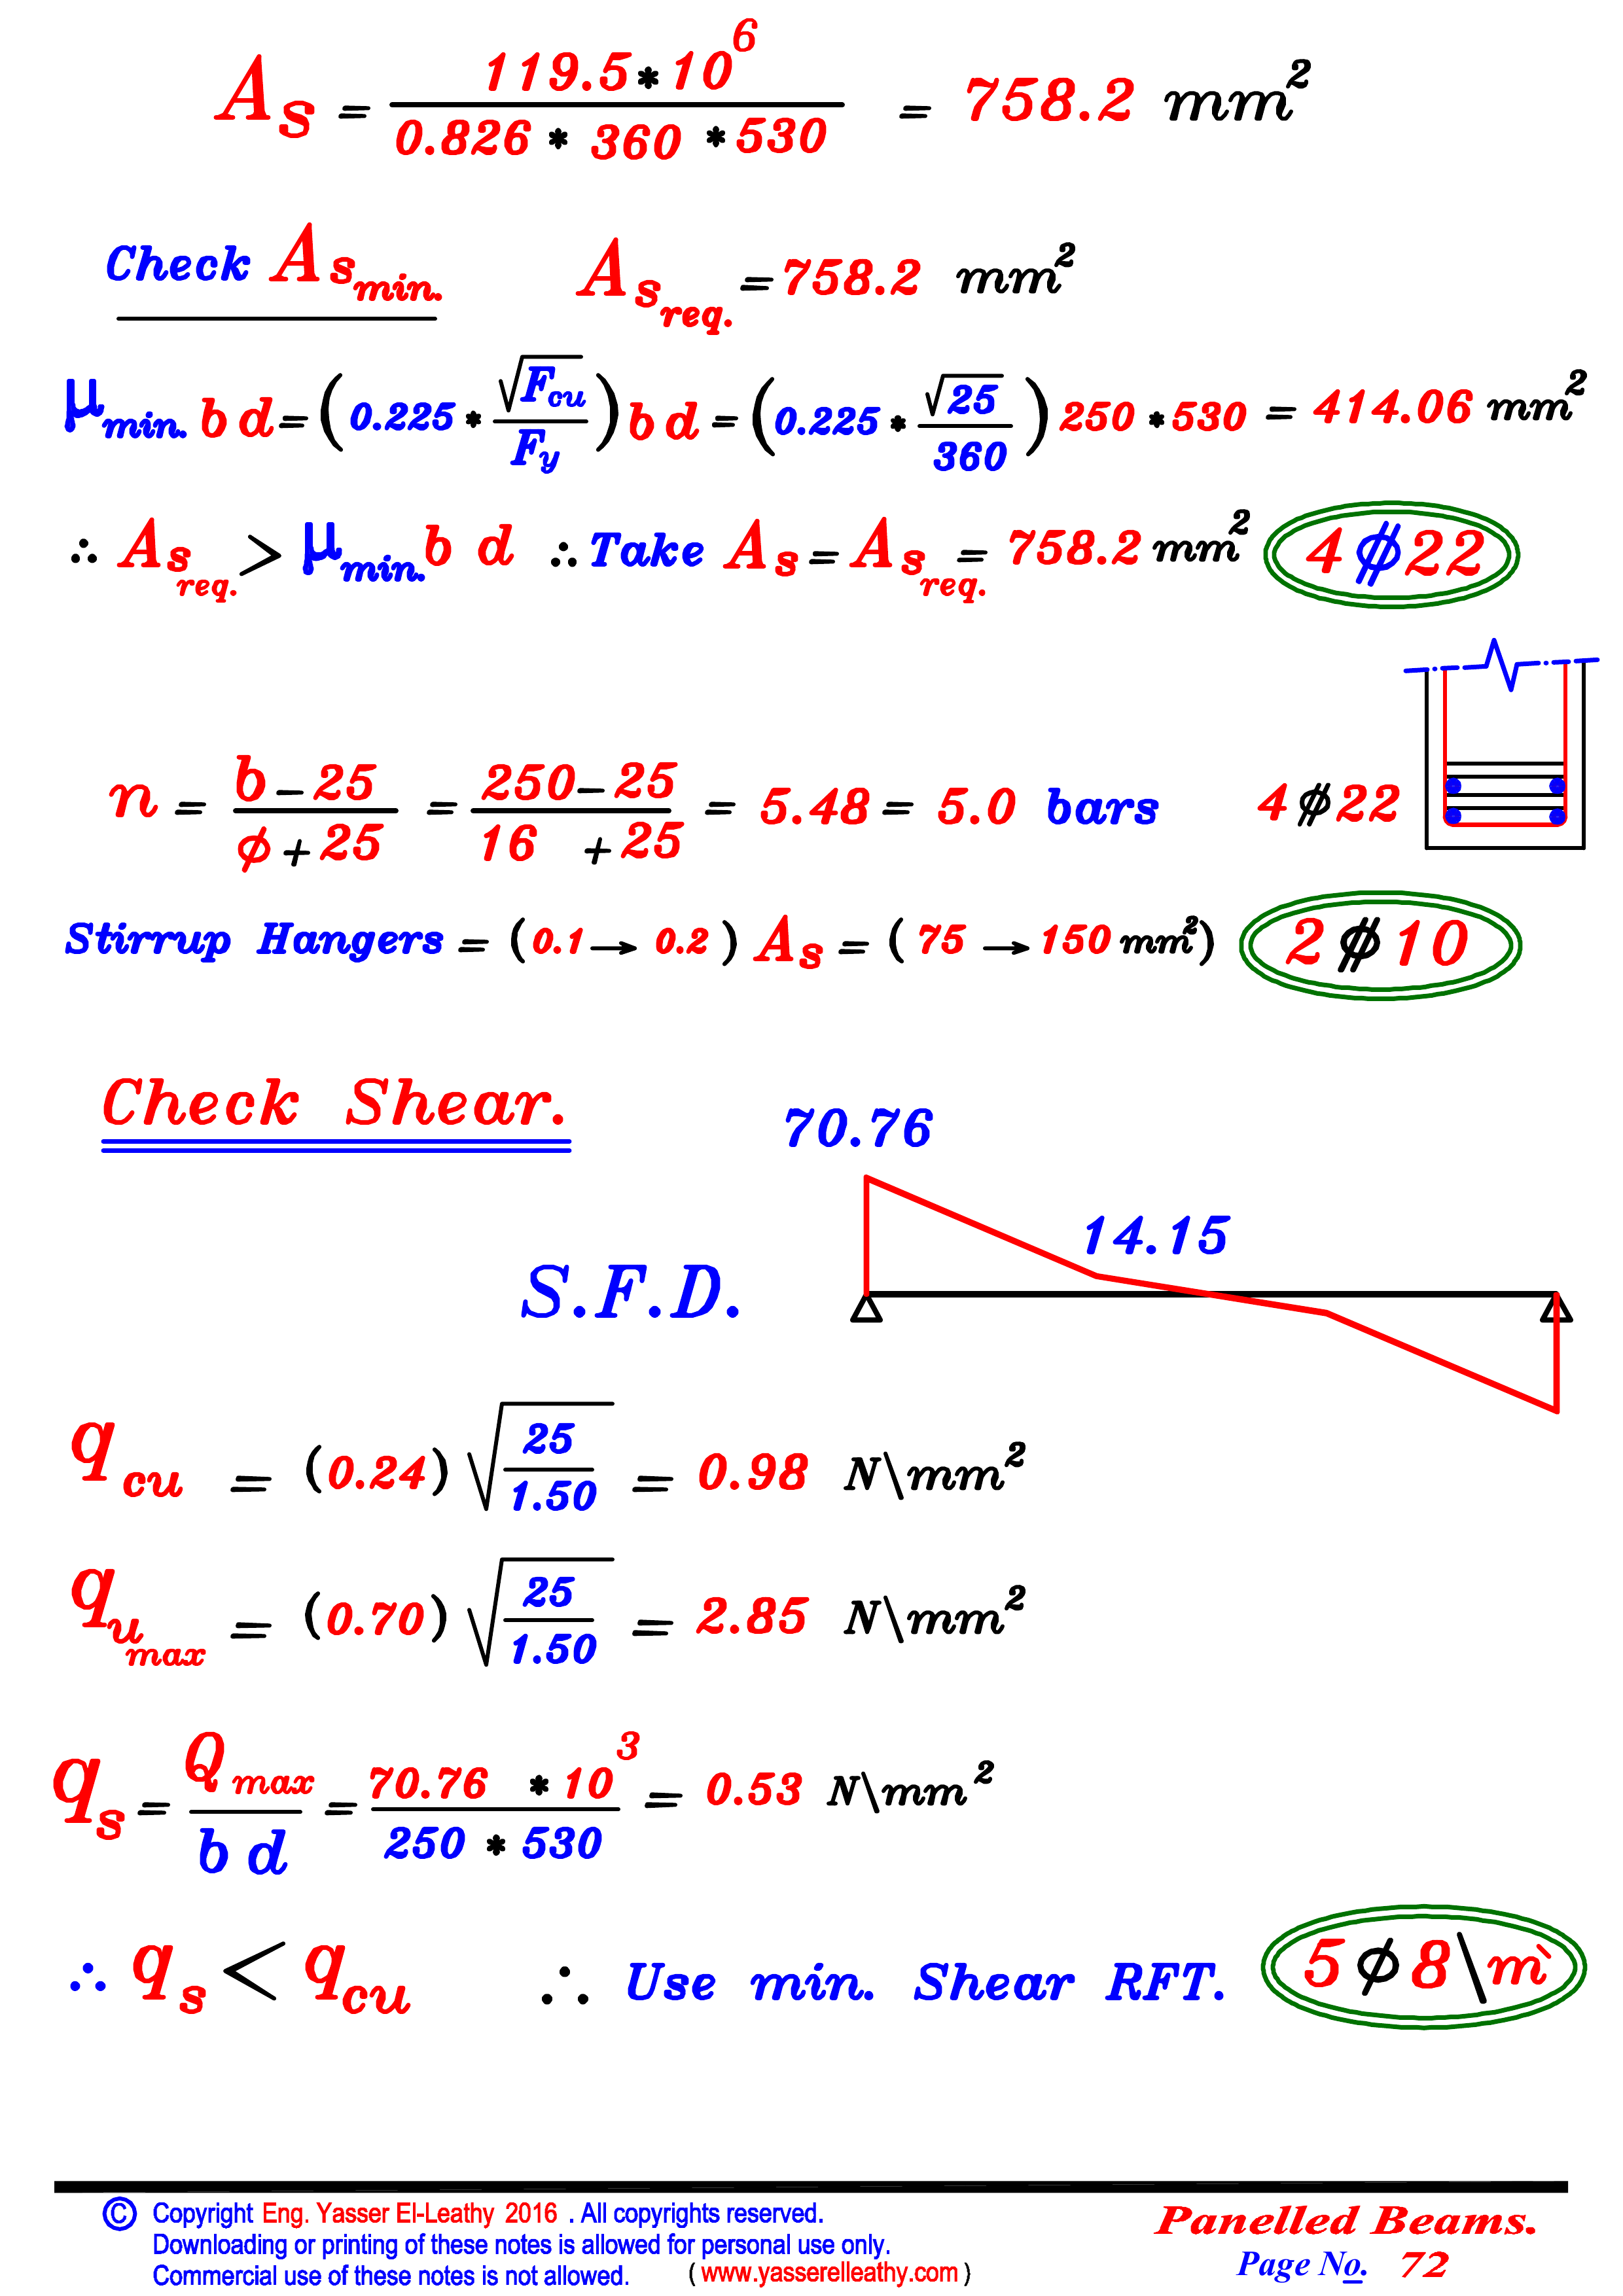 As = 119.5 * 10^6 / (0.826 * 360 * 530) = 758.2 mm²
Check As min. As req. = 758.2 mm²
μ min. b d = (0.225 * √Fcu / Fy) b d = (0.225 * √25 / 360) 250 * 530 = 414.06 mm²
∴ As req. > μ min. b d ∴ Take As = As req. = 758.2 mm² 4 ⌀ 22
n = (b - 25) / (φ + 25) = (250 - 25) / (16 + 25) = 5.48 = 5.0 bars 4 ⌀ 22
Stirrup Hangers = (0.1 → 0.2) As = (75 → 150 mm²) 2 ⌀ 10
Check Shear.
70.76
14.15
S.F.D.
q cu = (0.24) √(25 / 1.50) = 0.98 N\mm²
q u max = (0.70) √(25 / 1.50) = 2.85 N\mm²
q s = Q max / b d = 70.76 * 10³ / (250 * 530) = 0.53 N\mm²
∴ q s < q cu ∴ Use min. Shear RFT. 5 φ 8 \ m`
© Copyright Eng. Yasser El-Leathy 2016 . All copyrights reserved.
Downloading or printing of these notes is allowed for personal use only.
Commercial use of these notes is not allowed. ( www.yasserelleathy.com )
Panelled Beams.
Page No. 72